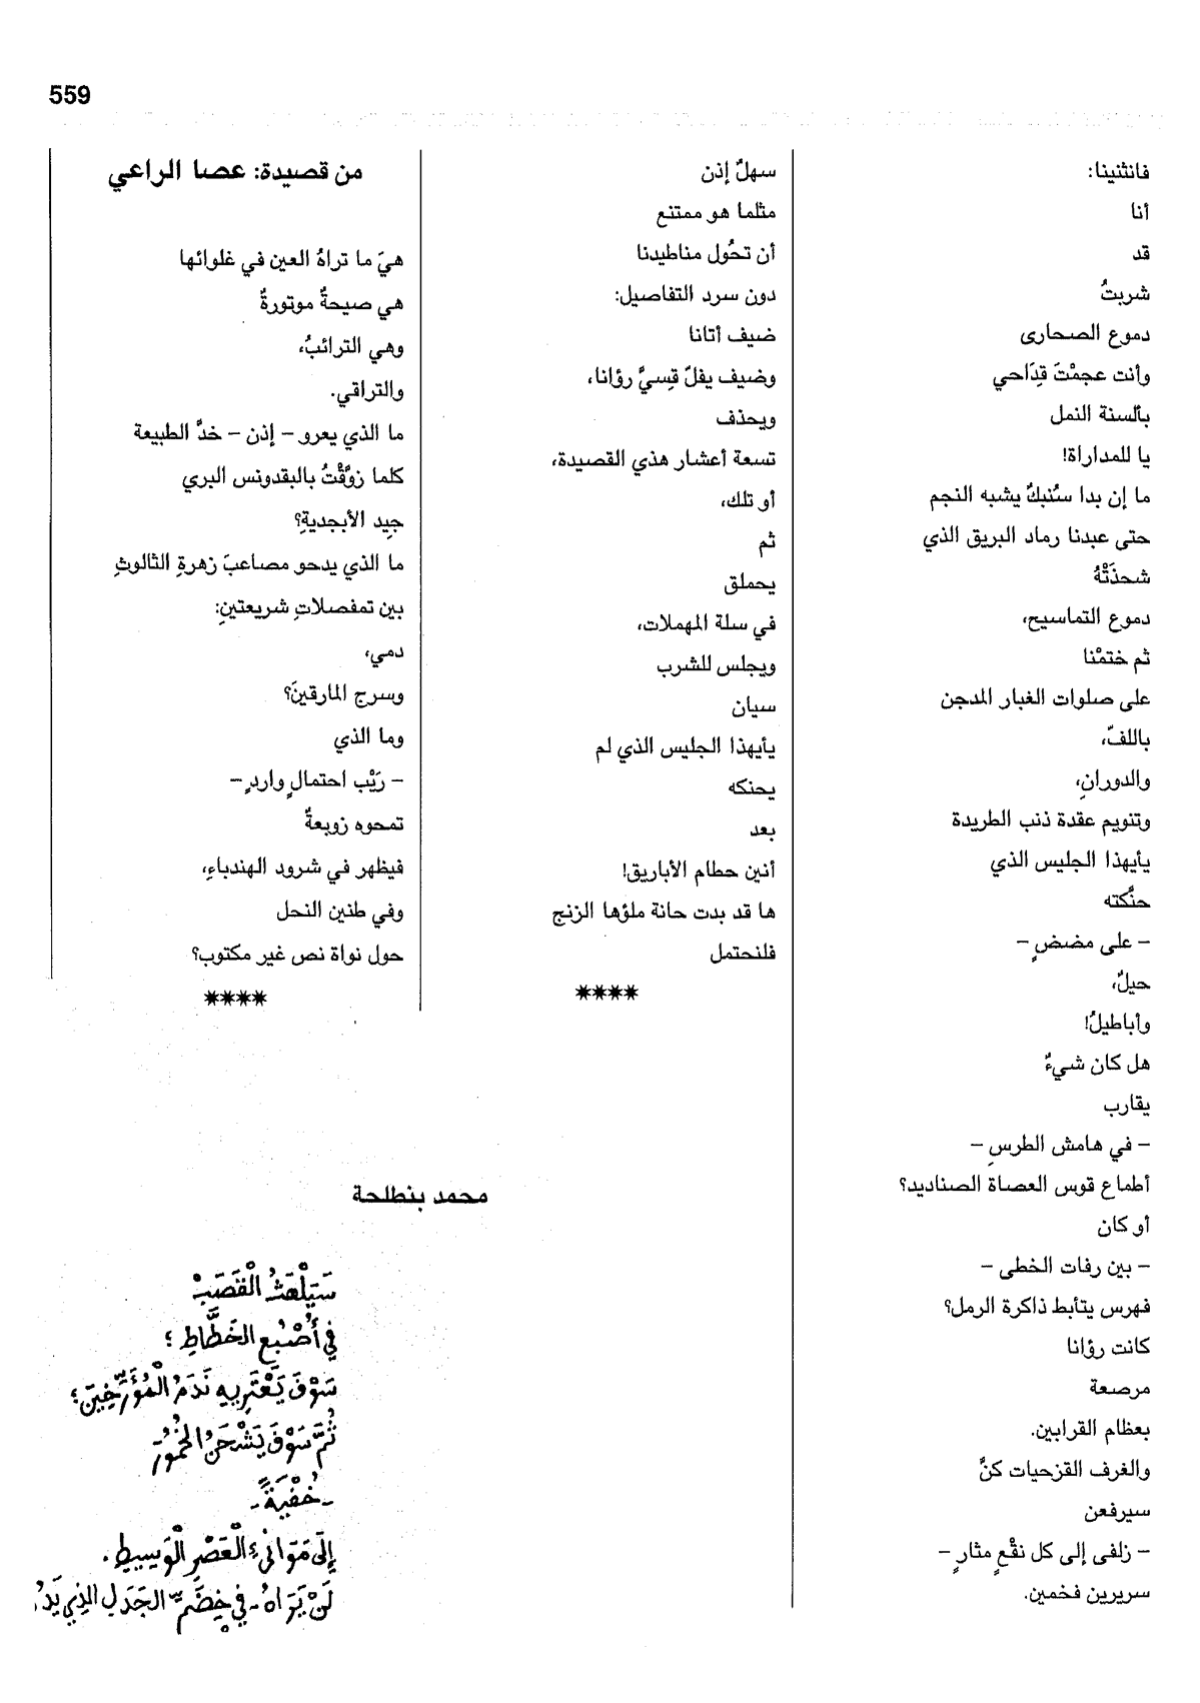 559
فانثنينا:
أنا
قد
شربتُ
دموع الصحارى
وأنت عجمْتَ قِدَاحي
بألسنة النمل
يا للمداراة!
ما إن بدا سُنبكٌ يشبه النجم
حتى عبدنا رماد البريق الذي
شحذَتْهُ
دموع التماسيح،
ثم ختمْنا
على صلوات الغبار المدجن
باللفّ،
والدورانِ،
وتنويم عقدة ذنب الطريدة
يأيهذا الجليس الذي
حنَّكته
– على مضضٍ –
حيلٌ،
وأباطيلُ!
هل كان شيءٌ
يقارب
– في هامش الطرسِ –
أطماع قوس العصاة الصناديد؟
أو كان
– بين رفات الخطى –
فهرس يتأبط ذاكرة الرمل؟
كانت رؤانا
مرصعة
بعظام القرابين.
والغرف القزحيات كنَّ
سيرفعن
– زلفى إلى كل نقْعٍ مثارٍ –
سريرين فخمين.
سهلٌ إذن
مثلما هو ممتنع
أن تحُول مناطيدنا
دون سرد التفاصيل:
ضيف أتانا
وضيف يفلّ قِسيَّ رؤانا،
ويحذف
تسعة أعشار هذي القصيدة،
أو تلك،
ثم
يحملق
في سلة المهملات،
ويجلس للشرب
سيان
يأيهذا الجليس الذي لم
يحنكه
بعد
أنين حطام الأباريق!
ها قد بدت حانة ملؤها الزنج
فلنحتمل
****
من قصيدة: عصا الراعي
هيَ ما تراهُ العين في غلوائها
هي صيحةٌ موتورةٌ
وهي الترائبُ،
والتراقي.
ما الذي يعرو – إذن – خدَّ الطبيعة
كلما زوَّقْتُ بالبقدونس البري
جيد الأبجديةِ؟
ما الذي يدحو مصاعبَ زهرةِ الثالوثِ
بين تمفصلاتِ شريعتينِ:
دمي،
وسرج المارقينَ؟
وما الذي
– رَيْب احتمالٍ واردٍ –
تمحوه زوبعةٌ
فيظهر في شرود الهندباءِ،
وفي طنين النحل
حول نواة نص غير مكتوب؟
****
محمد بنطلحة
سَيَلْهَثُ الْقَصَبْ
فِي أُصْبُعِ الخَطَّاطِ؛
سَوْفَ يَعْتَرِيهِ نَدَمُ الْمُؤَرِّخِينَ؛
ثُمَّ سَوْفَ يَشْحَنُ الخُمُورَ
- خُفْيَةً -
إِلَى مَوَانِئِ الْعَصْرِ الْوَسِيطِ.
لَنْ يَرَاهُ - فِي خِضَمِّ الجَدَلِ الذِي